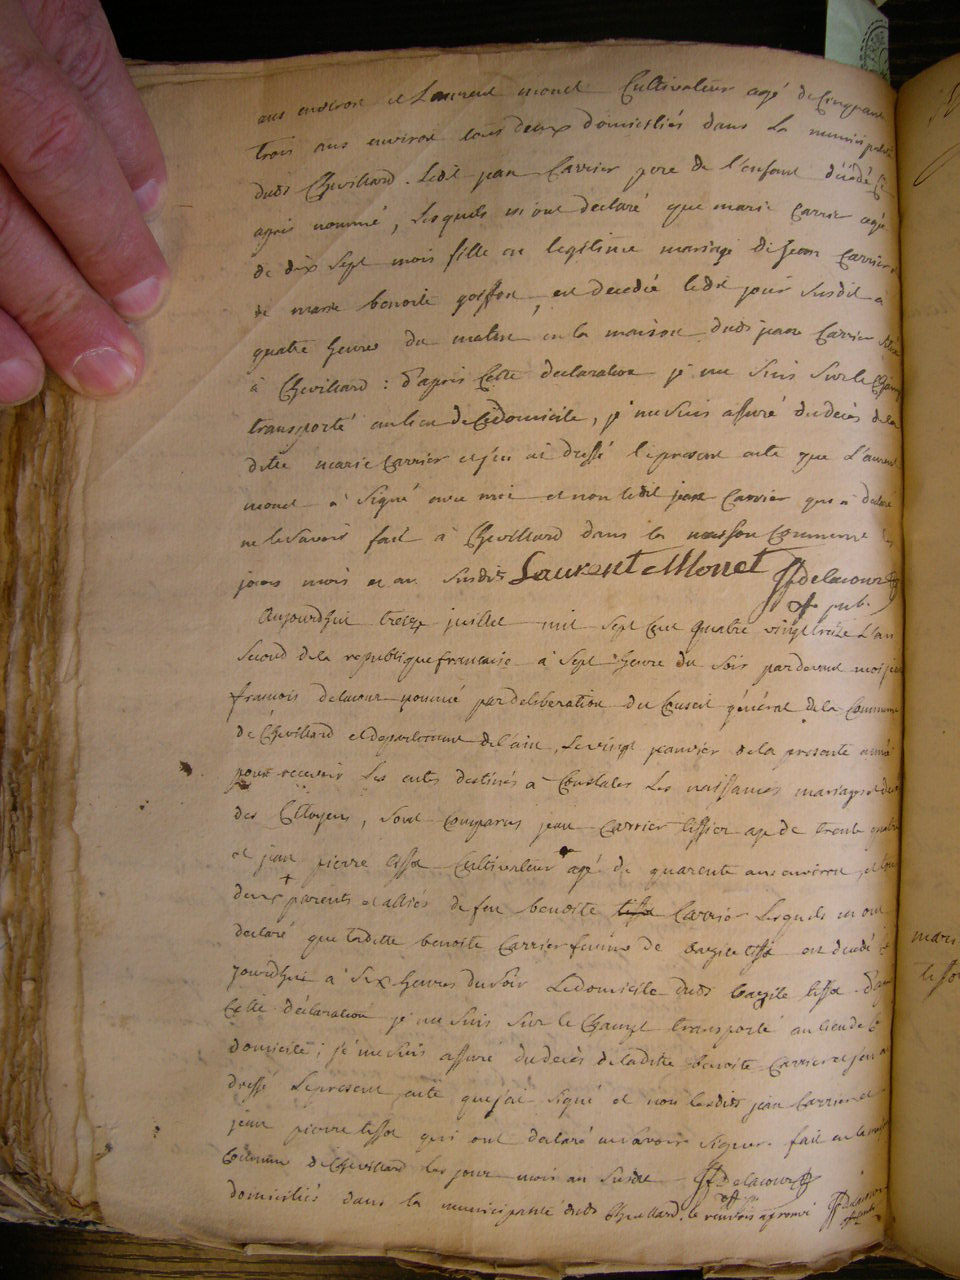 ans environ et Laurent monet Cultivateur agé de Cinquante
trois ans environ tous deux domiciliés dans la municipalité
dudt Chevillard. Ledit jean Carrier pere de l'enfant décédé Cy
après nommé, Lesquels m'ont declaré que marie Carrier agé
de dix Sept mois fille en legitime mariage de jean Carrier et
de marie benoite goiffon, est decedée ledit jour Susdit à
quatre heures du matin, en la maison dudt jean Carrier
à Chevillard : d'après Cette déclaration je me Suis Sur le Champ
transporté au lieu de Ce domicile, je me Suis assuré du decès de la
ditte marie Carrier et j'en ai dressé le present acte que Laurent
monet à Signé avec moi et non ledit jean Carrier qui à declaré
ne le Savoir fait à Chevillard dans la maison Commune les
jours mois et an Susdit Laurent Monet JJ delacour
off pub.
Aujourdhui treize juillet mil Sept Cent quatre vingt treize L'an
Second de la republique francaise à Sept heure du Soir pardevant moi jean
francois delacour nommé par deliberation du Conseil général de la Commune
de Chevillard et departement de l'ain, Le vingt janvier de la presente année
pour recevoir Les actes destinés à Constater Les naissances mariages et decès
des Citoyens, Sont Comparus jean Carrier tissier age de trente quatre
et jean pierre tissot Cultivateur agé de quarente ans environ, et tous
deux + parents et alliés de feu benoite Carrier Lesquels m'ont
declaré que laditte benoite Carrier femme de tissot est decedé
jourdhui à Six heures du Soir Le domicile dudt tissot. d'après
Cette déclaration je me Suis Sur le Champt transporté au lieu de Ce
domicile; je me Suis assuré du decès de laditte benoite Carrier et j'en ai
dressé Le present acte que j'ai Signé et non lesdits jean Carrier et
jean pierre tissot qui ont declaré ne Savoir Signer. fait en la maison
Commune de Chevillard les jour mois an Susdit JJ Delacour
off
domiciliés dans la municipalité dudt Chevillard. le renvois aprouvé JJ Delacour